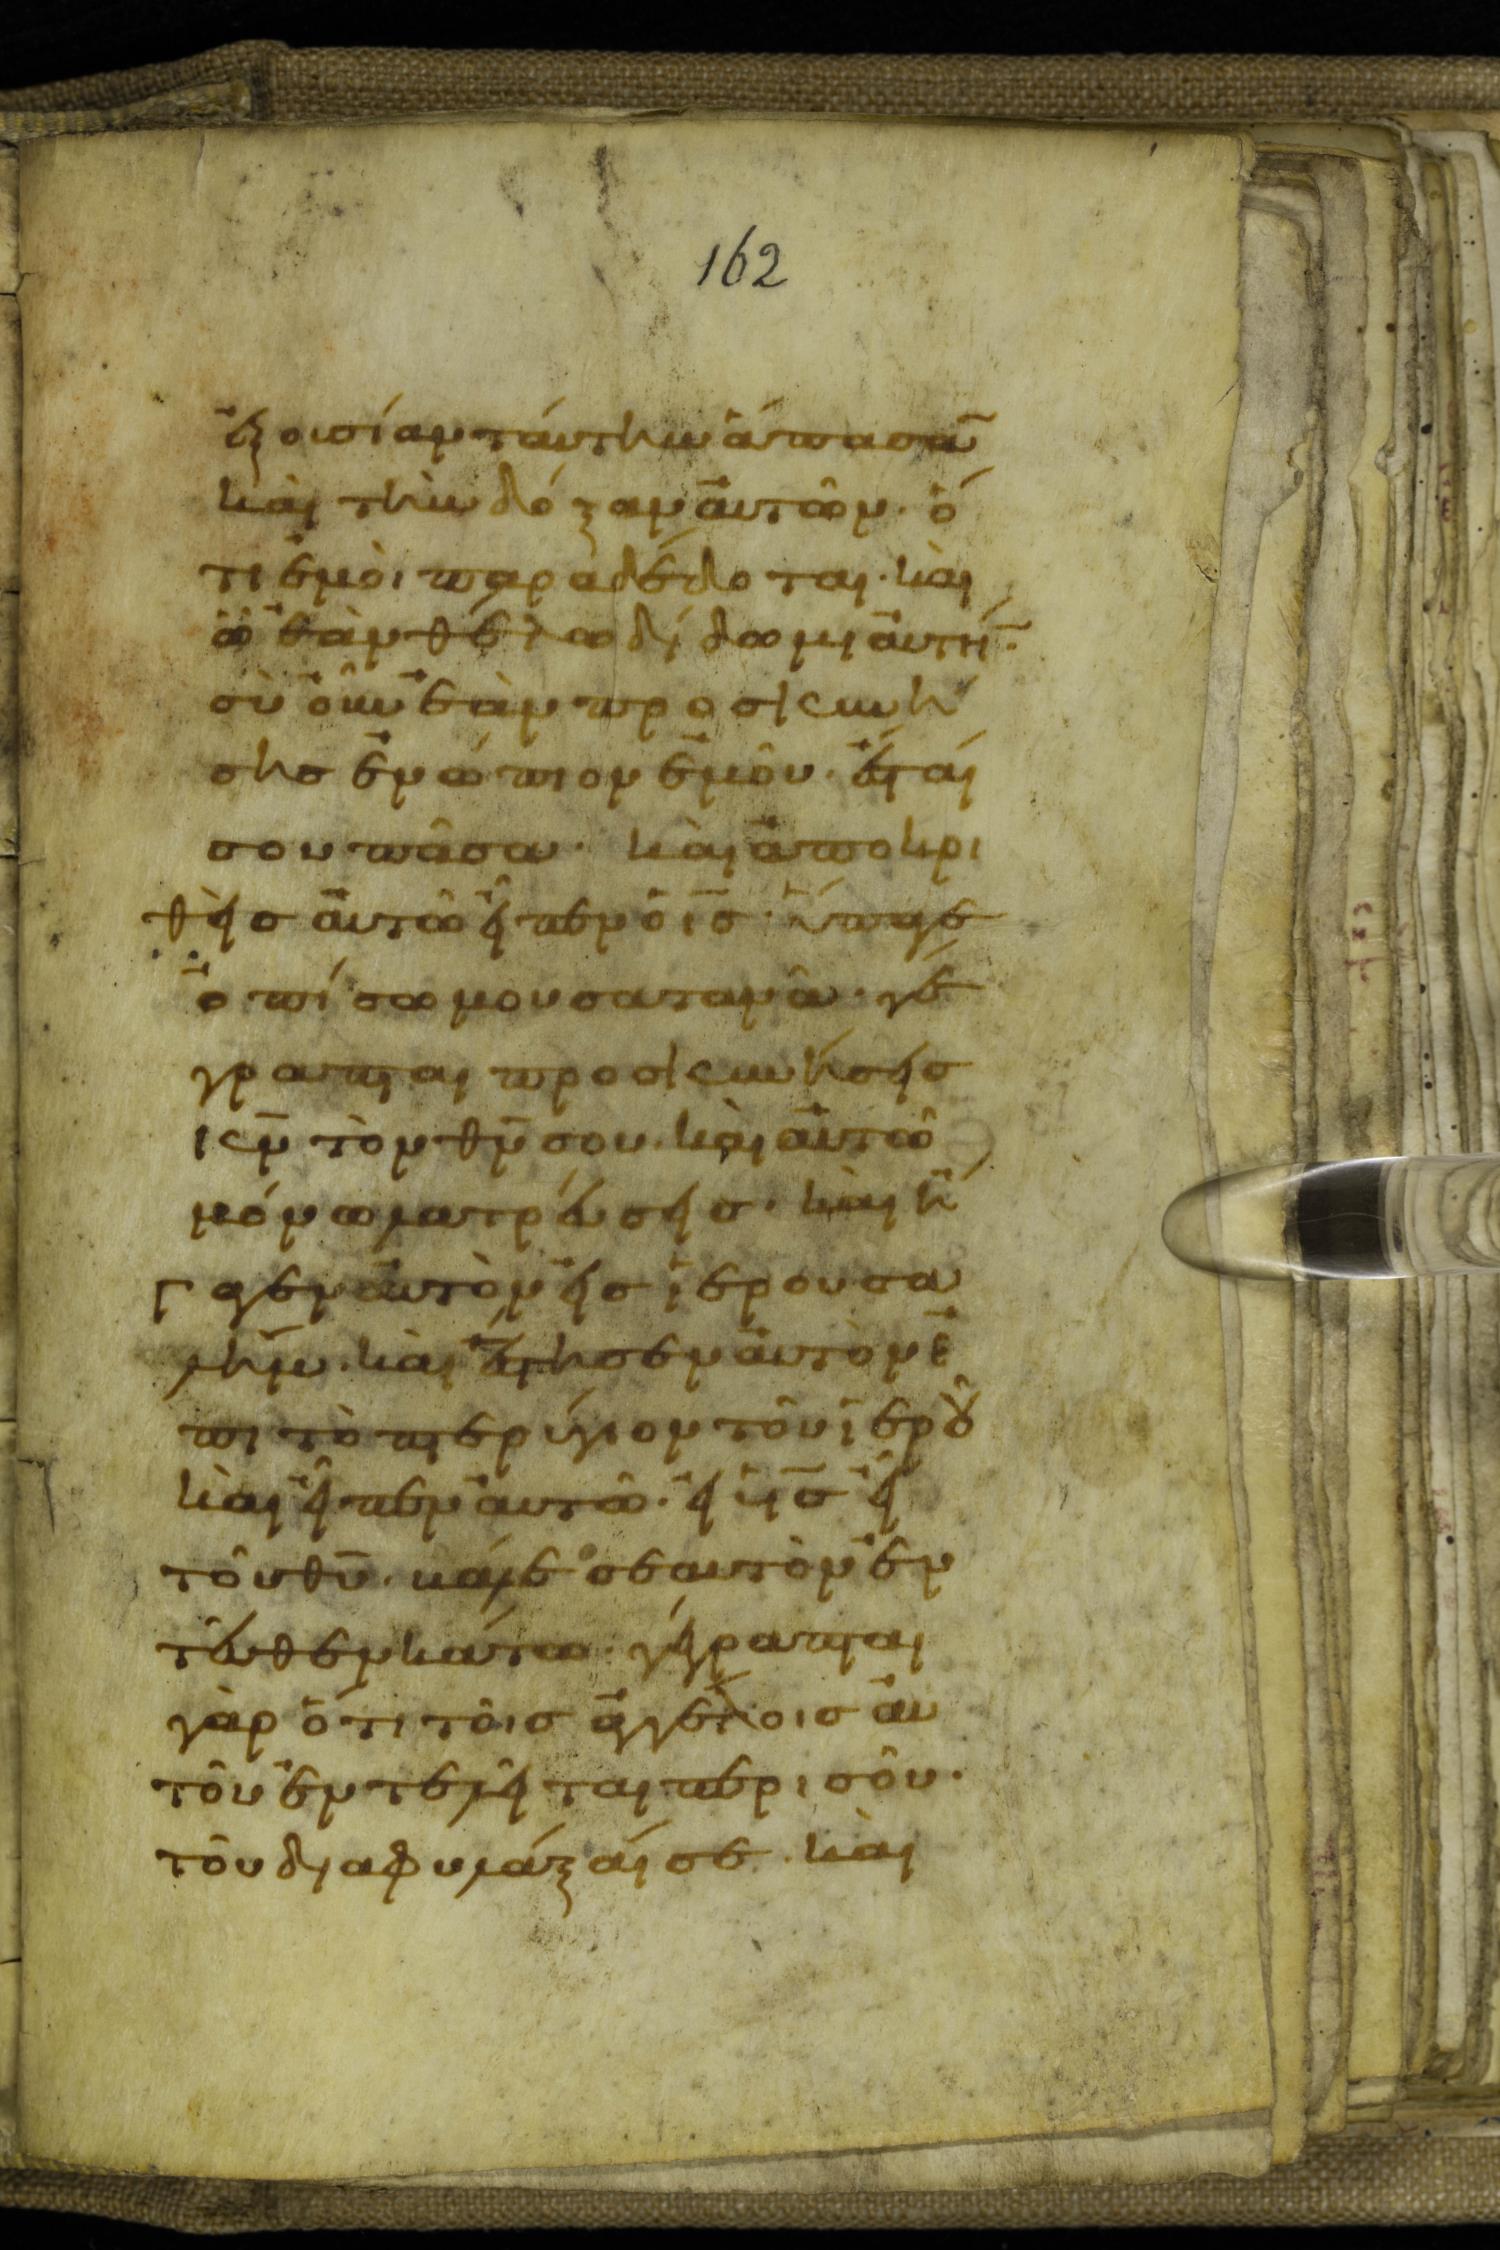 162
ἐξουσίαν ταύτην ἅπασα̅
καὶ τὴν δόξαν αὐτῶν· ὅ
τι ἐμοὶ παραδέδοται· καὶ
ᾧ ἐὰν θέλω δίδωμι αὐτή̅·
σὺ οὖν ἐὰν προσκυνή
σης ἐνώπιον ἐμοῦ· ἔσται
σου πᾶσα· καὶ ἀποκρι
θεὶς αὐτῶ εἶπεν ὁ ι̅ς̅· ὕπαγε
ὀπίσω μου σατανᾶ· γέ
γραπται προσκυνήσεις
κ̅ν̅ τὸν θ̅ν̅ σου· καὶ αὐτῶ
μόνω λατρεύσεις· καὶ ἤ
γαγεν αὐτὸν εἰς ἱερουσα
λήμ· καὶ ἔστησεν αὐτὸν ἐ
πὶ τὸ πτερύγιον τοῦ ἱεροῦ
καὶ εἶπεν αὐτῶ· εἰ υ̅ς̅ εἶ
τοῦ θ̅υ̅· βάλε σεαυτὸν ἐν
τεῦθεν κάτω· γέγραπται
γὰρ ὅτι τοῖς ἀγγέλοις αὐ
τοῦ ἐντελεῖται περὶ σοῦ·
τοῦ διαφυλάξαι σε· καὶ